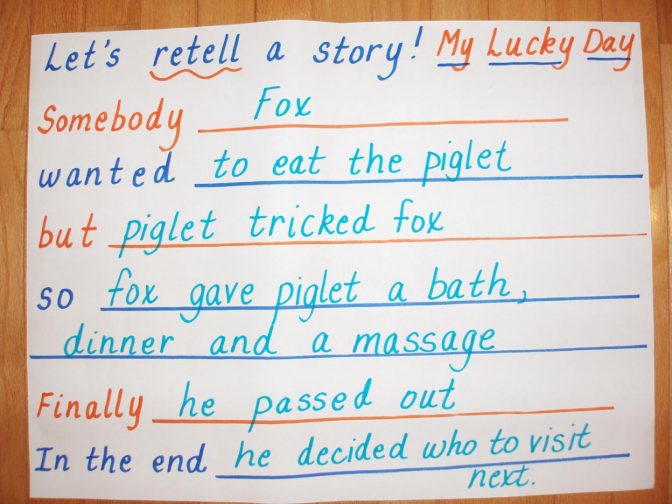 Let's retell a story! My Lucky Day
Somebody Fox
wanted to eat the piglet
but piglet tricked fox
so fox gave piglet a bath,
dinner and a massage
Finally he passed out
In the end he decided who to visit
next.